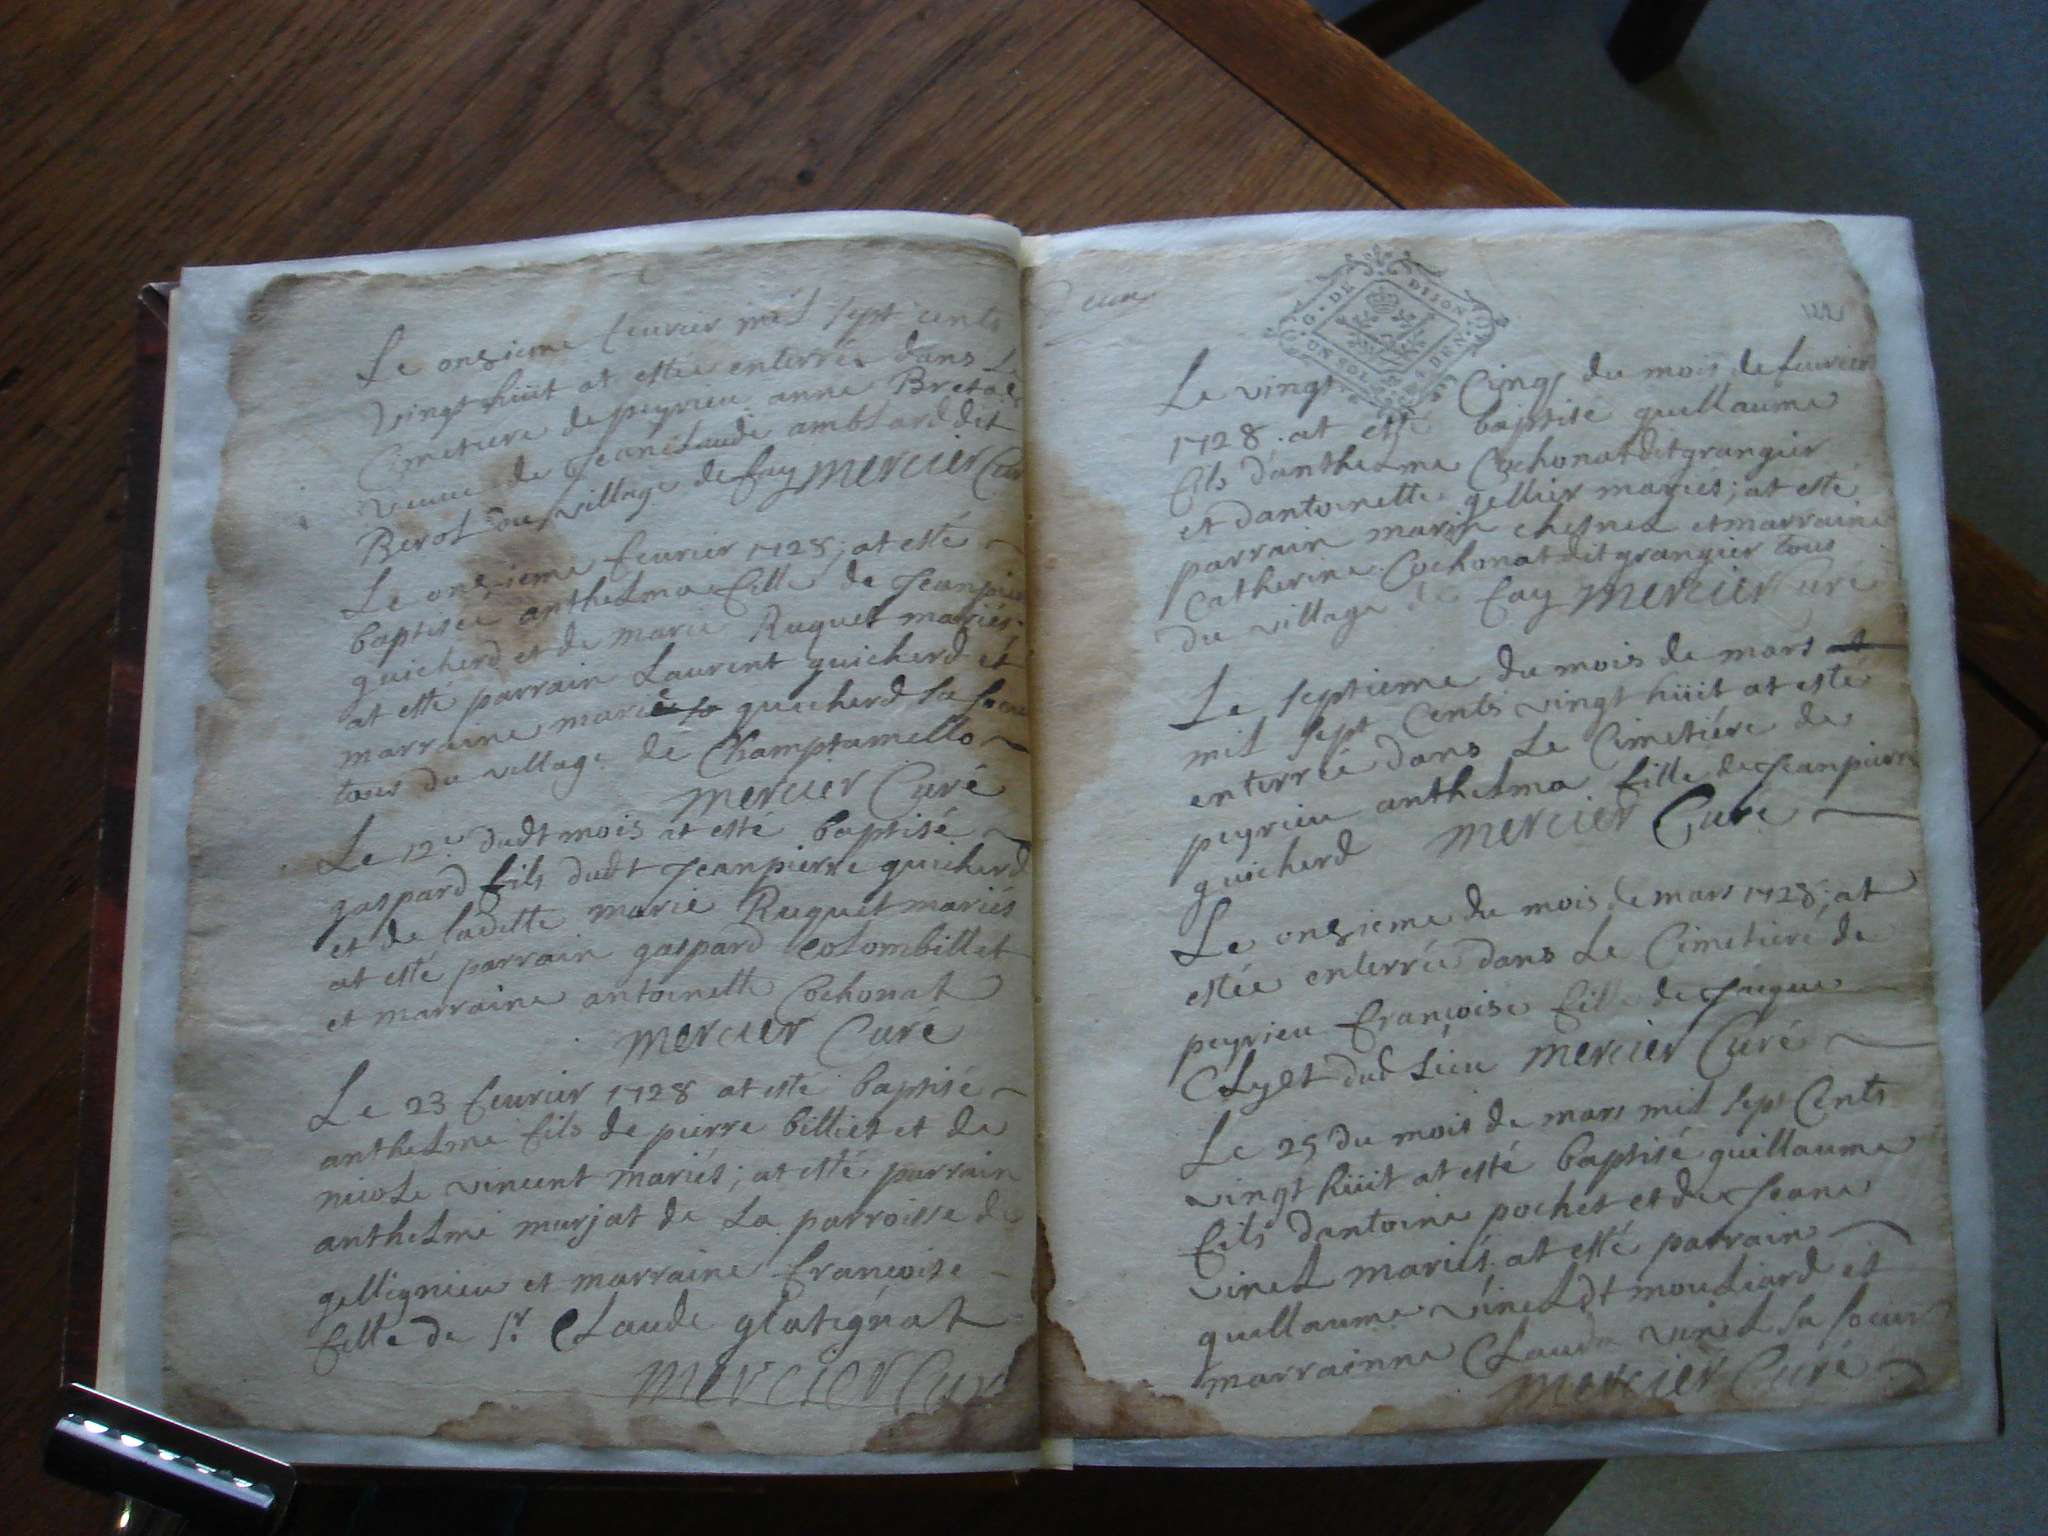 Le onzieme fevrier mil sept cents
vingt huit at estée enterrée dans Le
Cimetiere de peyrieu anne
veuve de Jeanclaude amblard dit
Berol du village de fay mercier Curé
Le onzieme fevrier 1728; at esté
baptisée anthelma fille de Jeanpierre
guicherd et de marie Ruquet mariés.
at esté parrain Laurent guicherd et
marraine marie guicherd sa soeur
tous du village de Champtamello
mercier Curé
Le 12e dudt mois at esté baptisé
gaspard fils dudt Jeanpierre guicherd
et de ladette marie Ruquet mariés
at esté parrain gaspard colombillet
et marraine antoinette Cochonat
mercier Curé
Le 23 fevrier 1728 at esté baptisé
anthelme fils de pierre billiet et de
nicole vincent mariés; at esté parrain
anthelme murjat de La parroisse de
gellignieu et marraine francoise
fille de sr. Claude glatignat
mercier Curé
G. DE DIJON
UN SOL 4 DEN.
122
Le vingt Cinq du mois de fevrier
1728. at esté baptisé guillaume
fils danthelme Cochonat dit grangier
et dantoinette gellier mariés; at esté
parrain marin chesnel et marraine
Catherine Cochonat dit grangier tous
du village de fay mercier Curé
Le septieme du mois de mars at
mil sept Cents vingt huit at esté
enterrée dans Le Cimetiére de
peyrieu anthelma fille de Jeanpierre
guicherd mercier Curé
Le onzieme du mois de mars 1728; at
estée enterrée dans Le Cimetiére de
peyrieu francoise fille de Jacque
Clyet dud Lieu mercier Curé
Le 25 du mois de mars mil sept Cents
vingt huit at esté baptisé guillaume
fils dantoine pochet et de Jeane
vinel mariés at esté parrain
guillaume vinel dt mouliard et
marrainne Clauda vinel sa soeur
mercier Curé